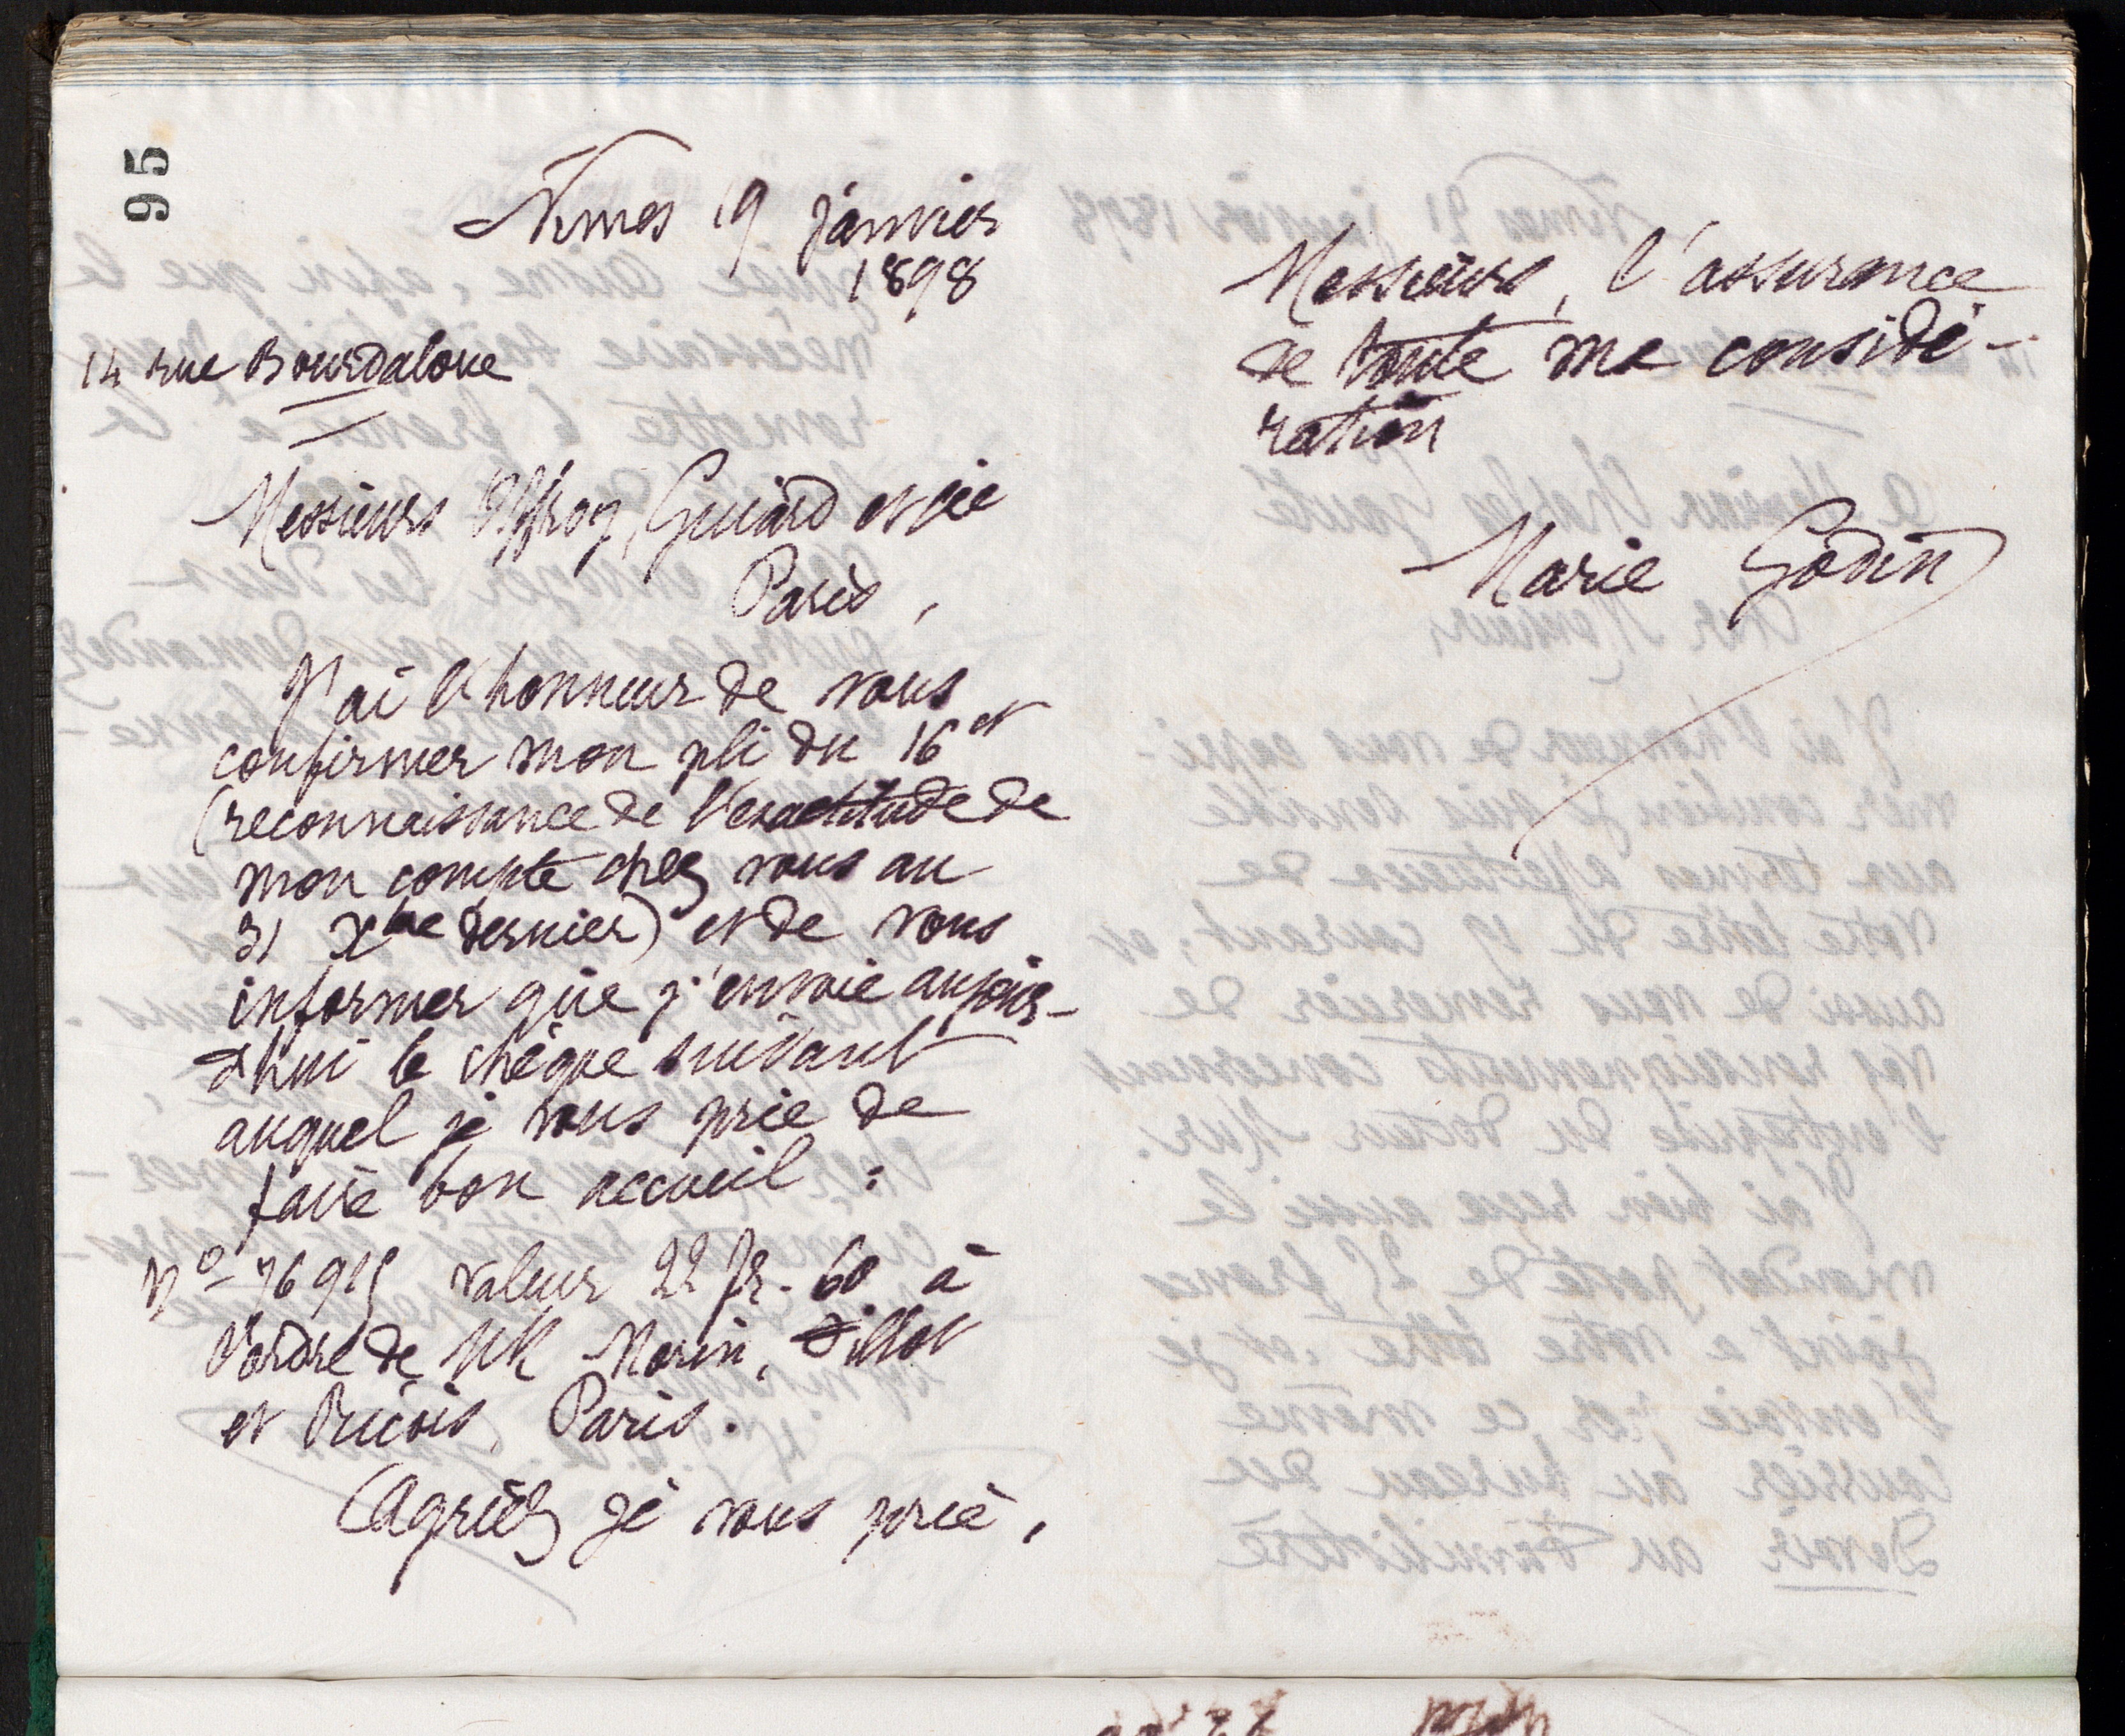 95
Nîmes 19 janvier
1898
14 rue Bourdaloue
Messieurs Offroy, Guiard et Cie
Paris,
J'ai l'honneur de vous
confirmer mon pli du 16 ct
(reconnaissance de l'exactitude de
mon compte chez vous au
31 Xbre dernier) et de vous
informer que j'envoie aujour-
d'hui le chèque suivant
auquel je vous prie de
faire bon accueil :
No 76915 valeur 22 fr. 60 à
l'ordre de MM Morin, Fillot
et Paris.
Agréez je vous prie,
Messieurs, l'assurance
de toute ma considé-
ration
Marie Godin